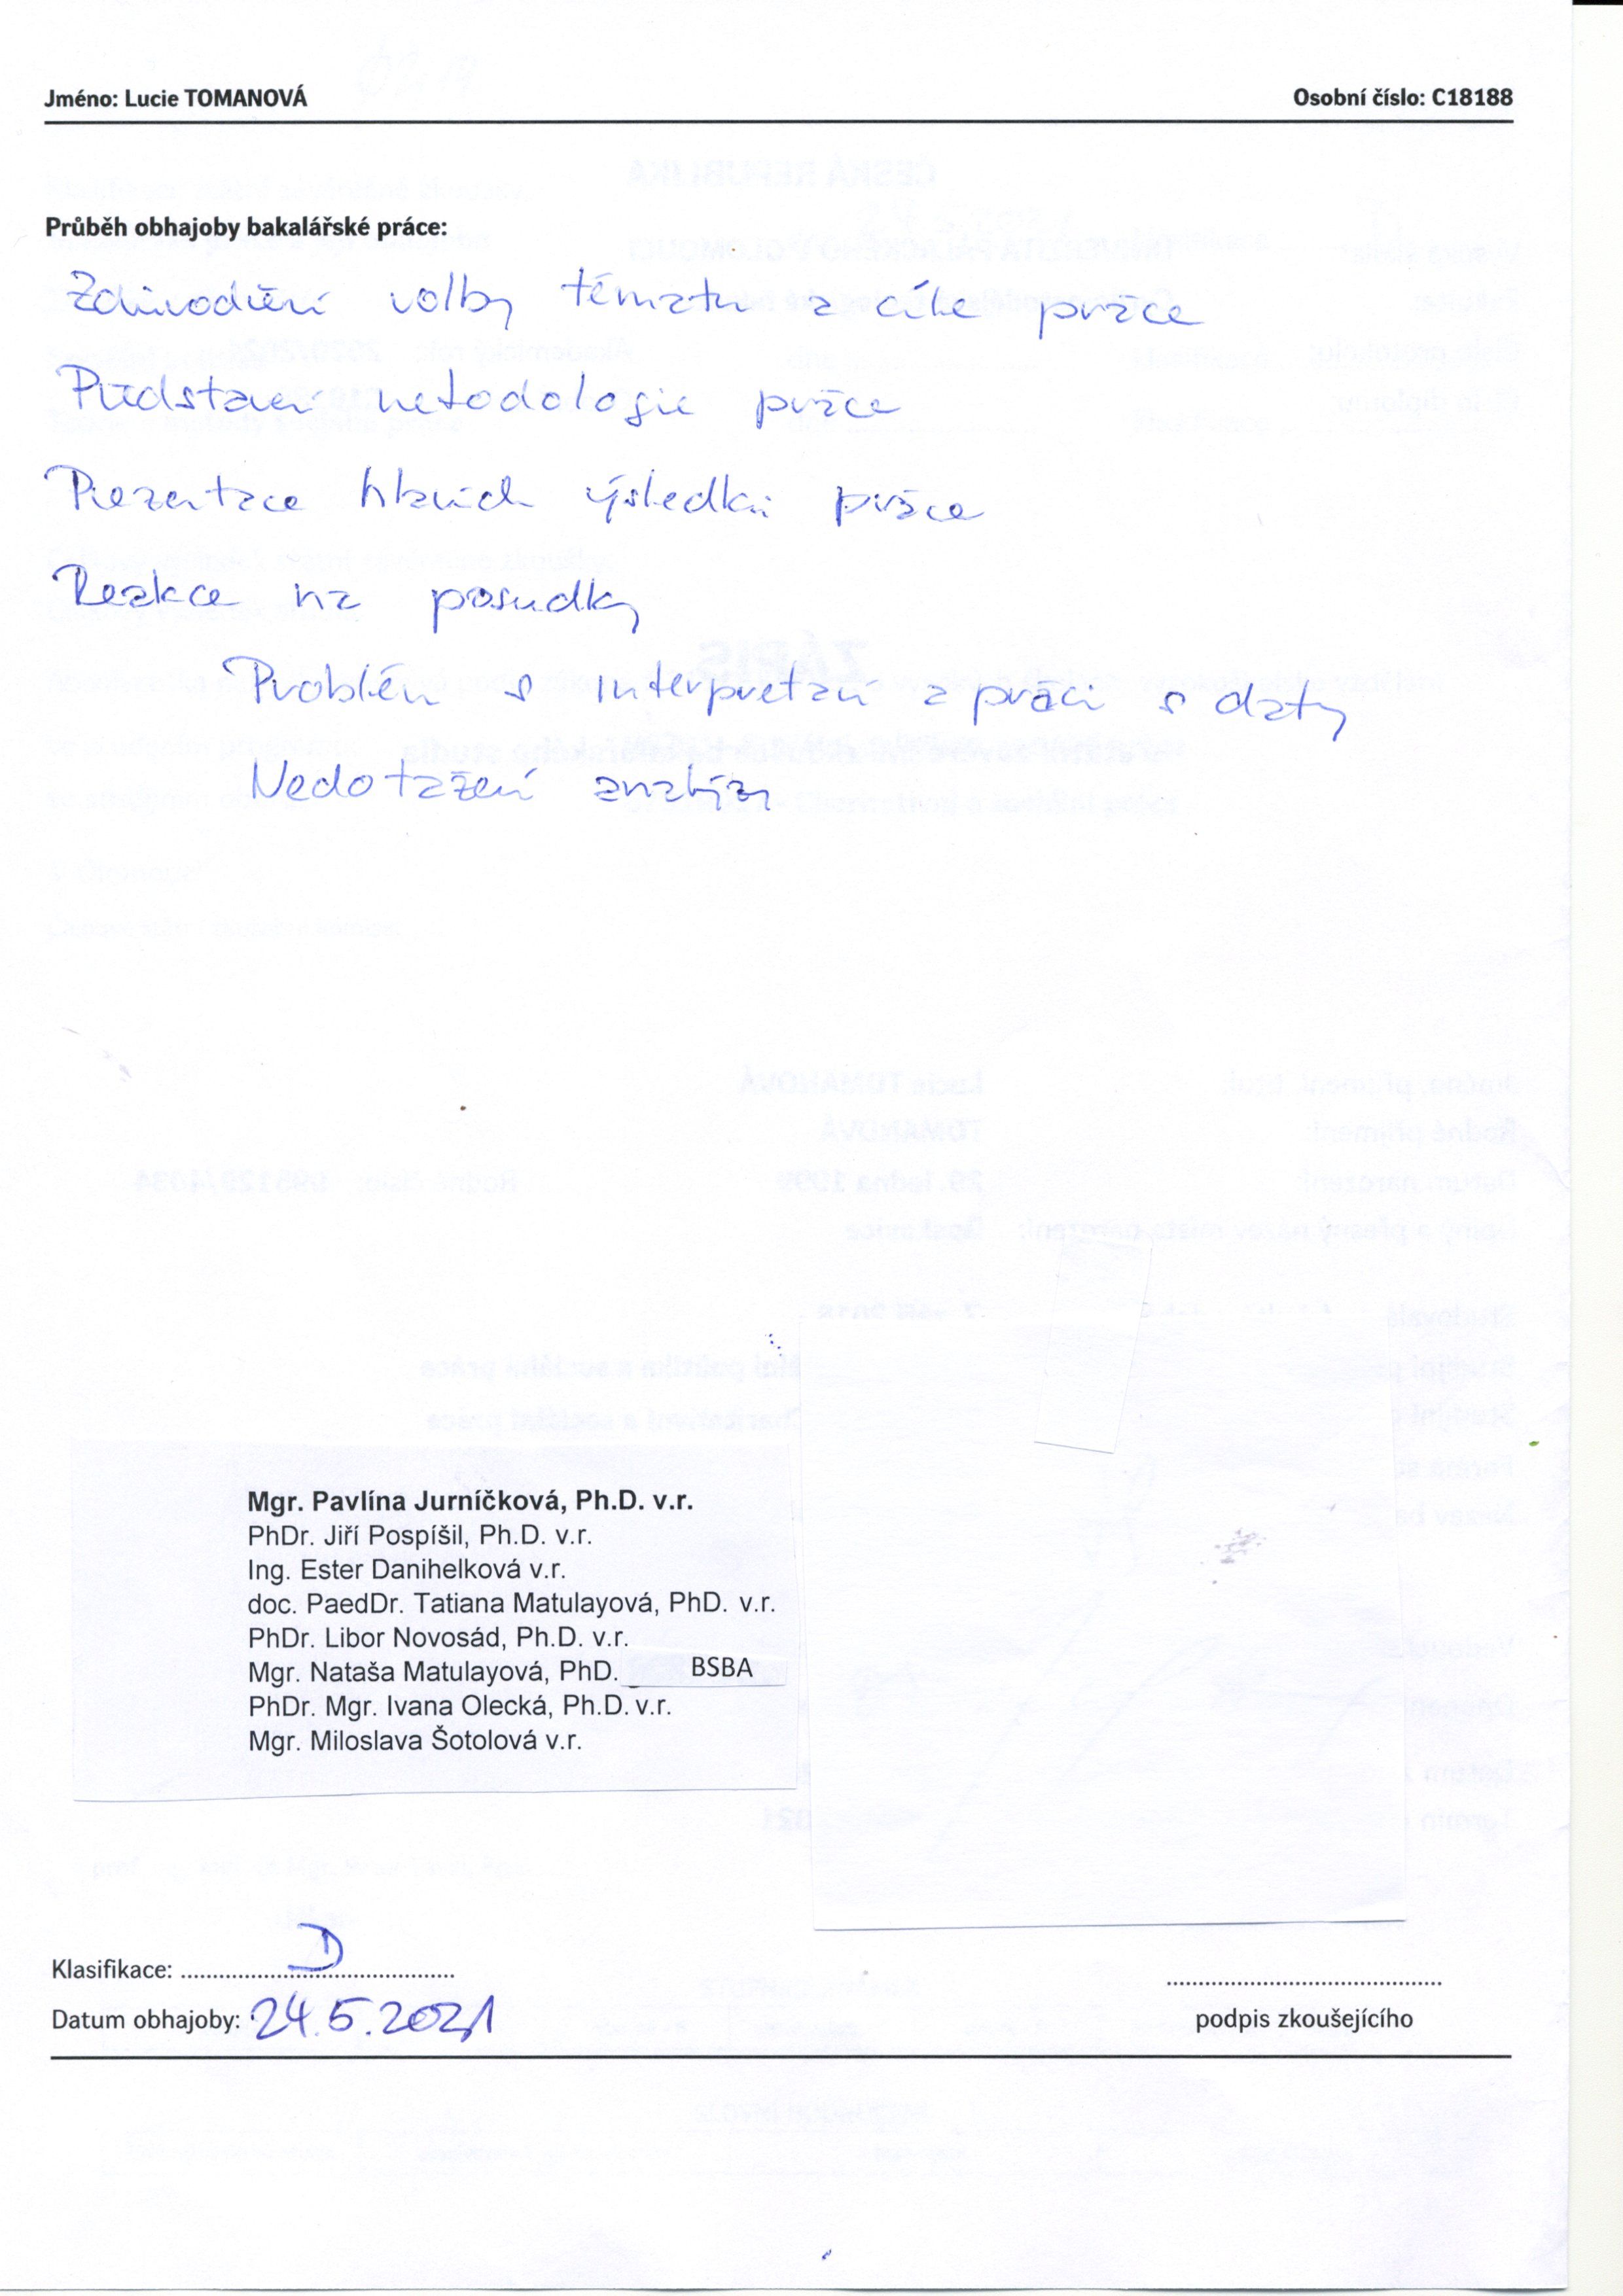 Jméno: Lucie TOMANOVÁ Osobní číslo: C18188
Průběh obhajoby bakalářské práce:
Zdůvodnění volby tématu a cíle práce
Představení metodologie práce
Prezentace hlavních výsledků práce
Reakce na posudky
Problém s interpretací a prací s daty
Nedotažení analýzy
Mgr. Pavlína Jurníčková, Ph.D. v.r.
PhDr. Jiří Pospíšil, Ph.D. v.r.
Ing. Ester Danihelková v.r.
doc. PaedDr. Tatiana Matulayová, PhD. v.r.
PhDr. Libor Novosád, Ph.D. v.r.
Mgr. Nataša Matulayová, PhD. BSBA
PhDr. Mgr. Ivana Olecká, Ph.D. v.r.
Mgr. Miloslava Šotolová v.r.
Klasifikace: D
Datum obhajoby: 24.5.2021
podpis zkoušejícího